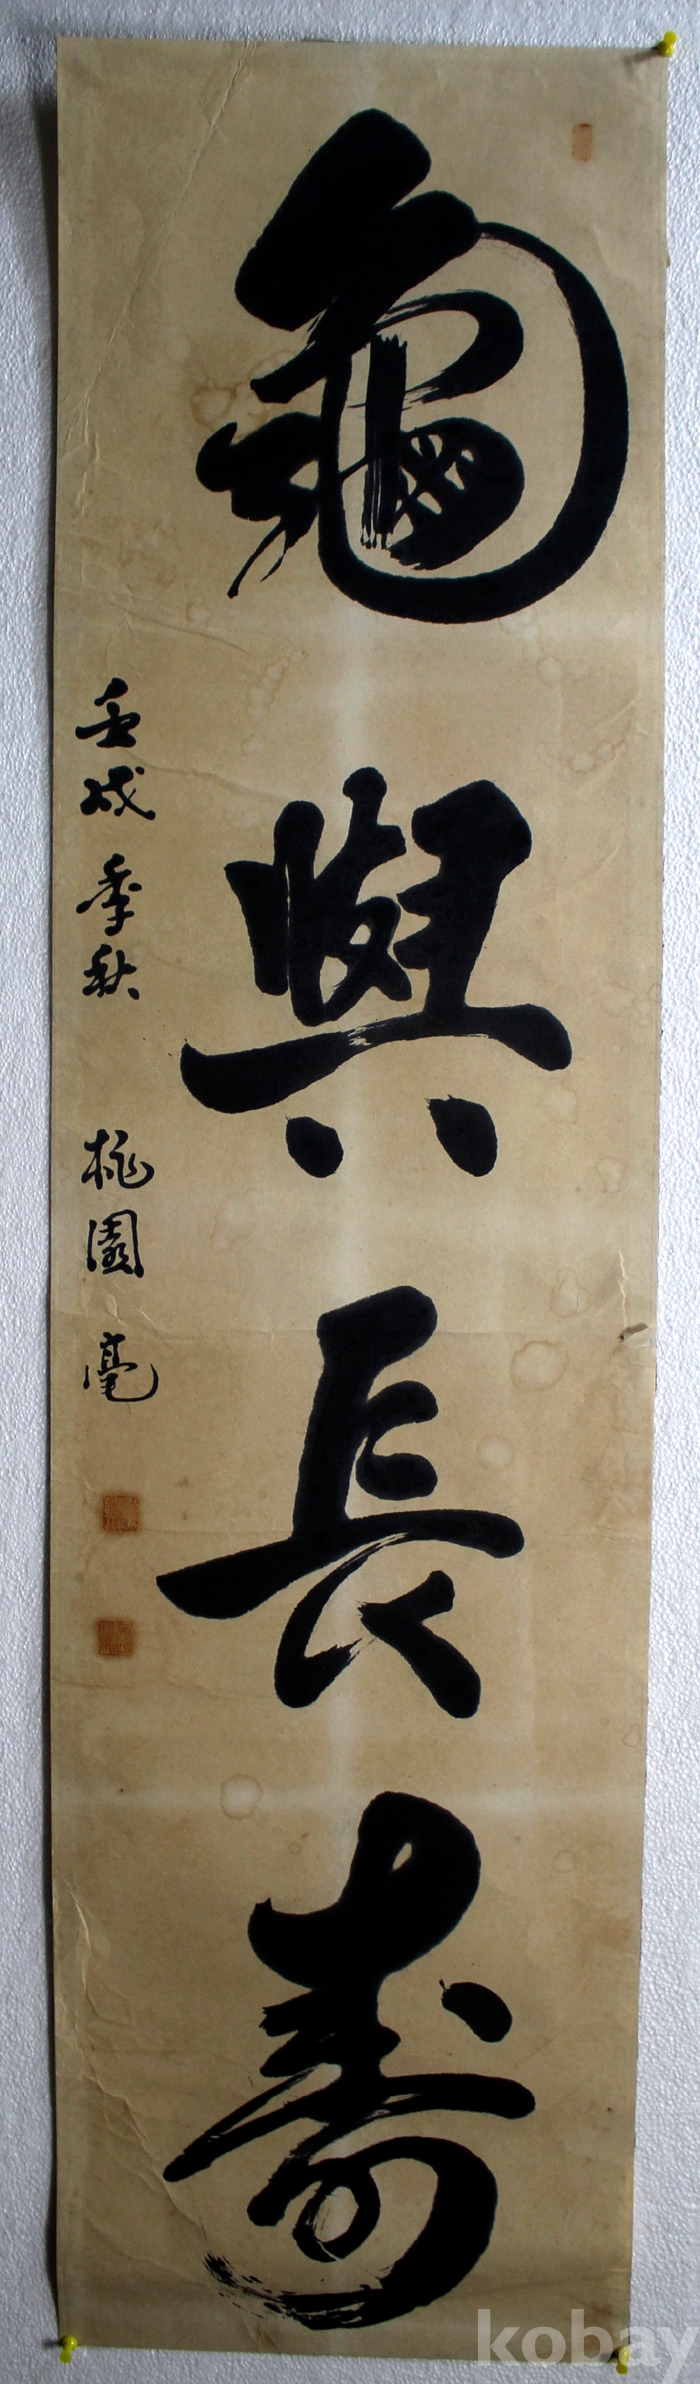 龜與長壽
壬戌季秋 桃園 毫
kobay